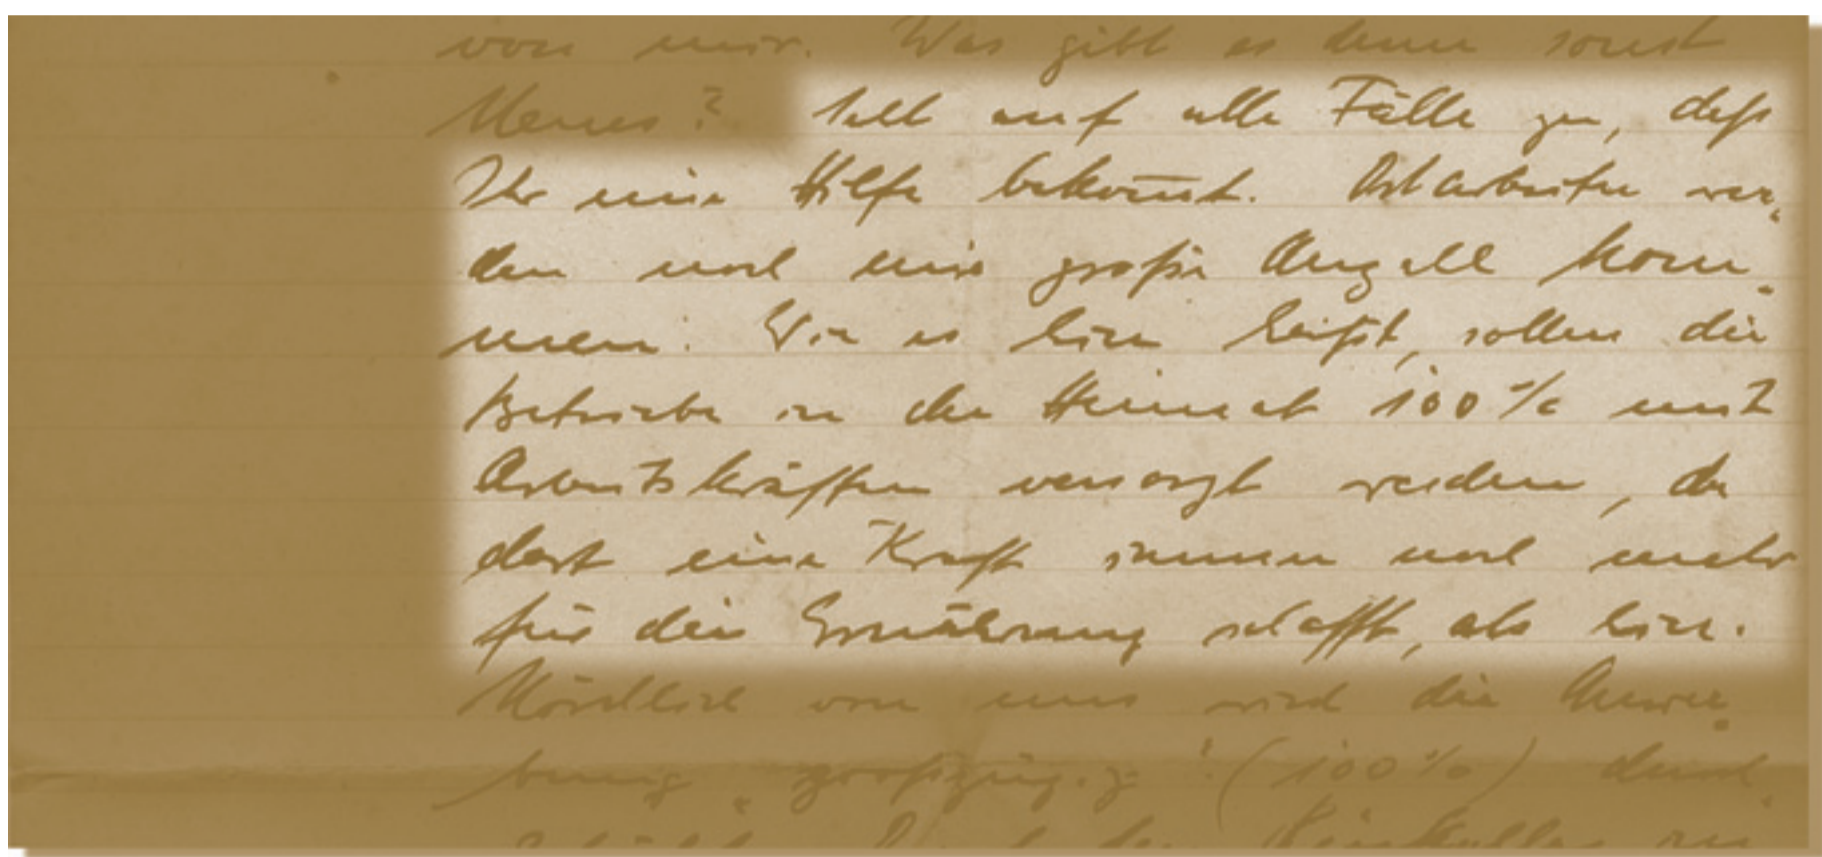 von mir. Was gibt es denn sonst
Neues? Seht auf alle Fälle zu, daß
Ihr eine Hilfe bekom̅t. Ostarbeiter wer-
den noch eine große Anzahl kom-
men. Wie es hier heißt, sollen die
Betriebe in der Heimat 100% mit
Arbeitskräften versorgt werden, da
dort eine Kraft immer noch mehr
für die Ernährung schafft, als hier.
Nördlich von uns wird die Anwer-
bung „großzügig“ (100%) durch-